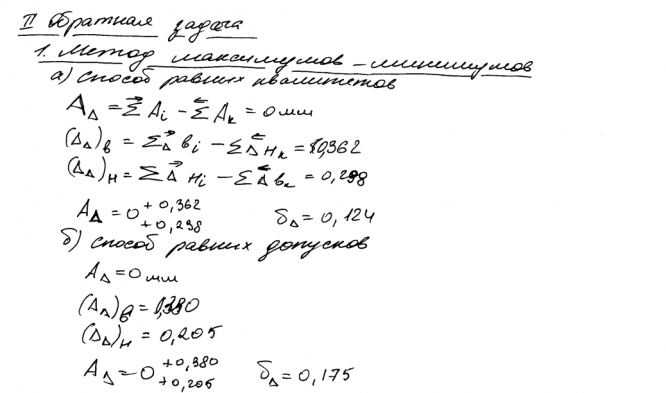 II Обратная задача
1. Метод максимумов – минимумов
а) способ равных квалитетов
A_Δ = Σ→ A_i – Σ← A_k = 0 мм
(Δ_Δ)_в = ΣΔ→ в_i – ΣΔ← н_k = 0,362
(Δ_Δ)_н = ΣΔ→ н_i – ΣΔ← в_k = 0,238
A_Δ = 0 +0,362 +0,238 δ_Δ = 0,124
б) способ равных допусков
A_Δ = 0 мм
(Δ_Δ)_в = 0,380
(Δ_Δ)_н = 0,205
A_Δ = 0 +0,380 +0,205 δ_Δ = 0,175